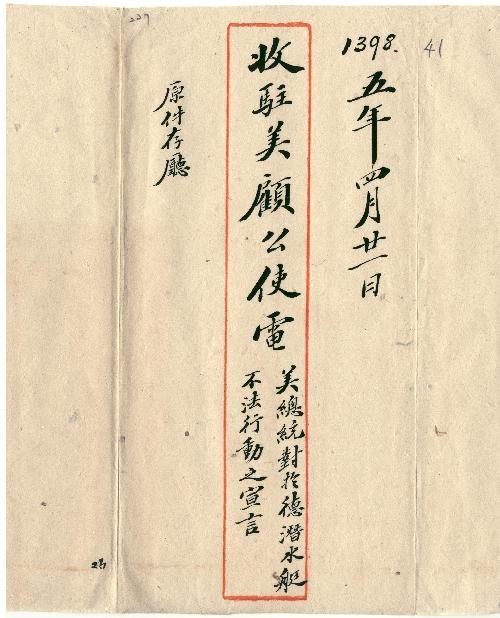 1398.
41
五年四月廿一日
收駐美顧公使電
美總統對於德潛水艇
不法行動之宣言
原件存廳
227